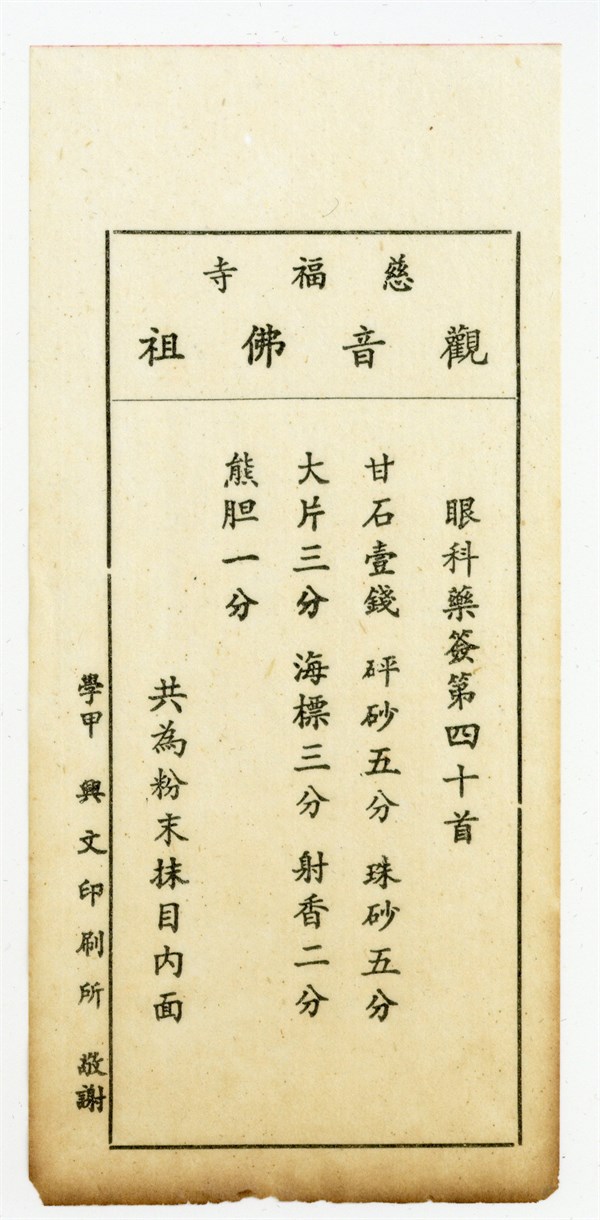 慈福寺
觀音佛祖
眼科藥簽第四十首
甘石壹錢 砰砂五分 珠砂五分
大片三分 海標三分 射香二分
熊胆一分
共為粉末抹目內面
學甲 興文印刷所 敬謝